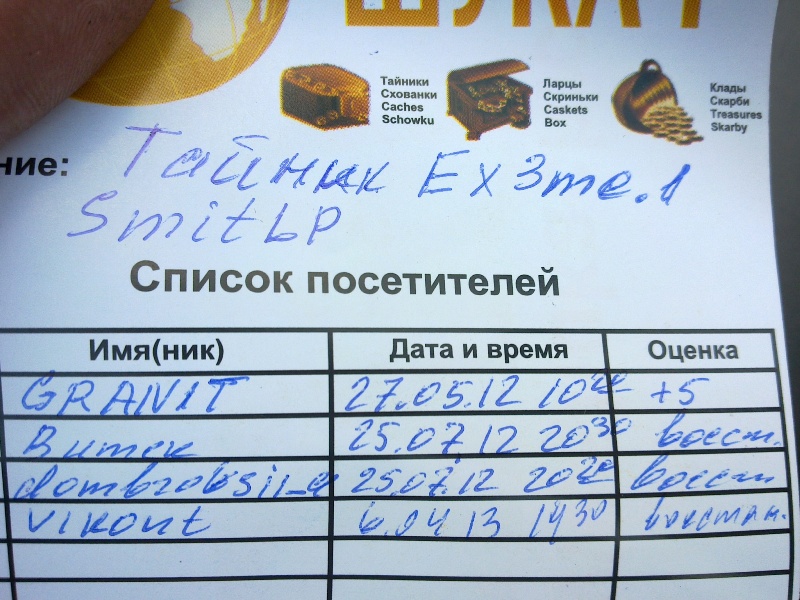 ШУКАЧ
Тайники
Схованки
Caches
Schowku
Ларцы
Скриньки
Caskets
Box
Клады
Скарби
Treasures
Skarby
ние: Тайник Ex3me.1
SmitLP
Список посетителей
Имя(ник) Дата и время Оценка
GRANIT 27.05.12 10 +5
Витек 25.07.12 20³⁰ восст.
25.07.12 восст
Vikont 6.04 13 14³⁰ восстан.